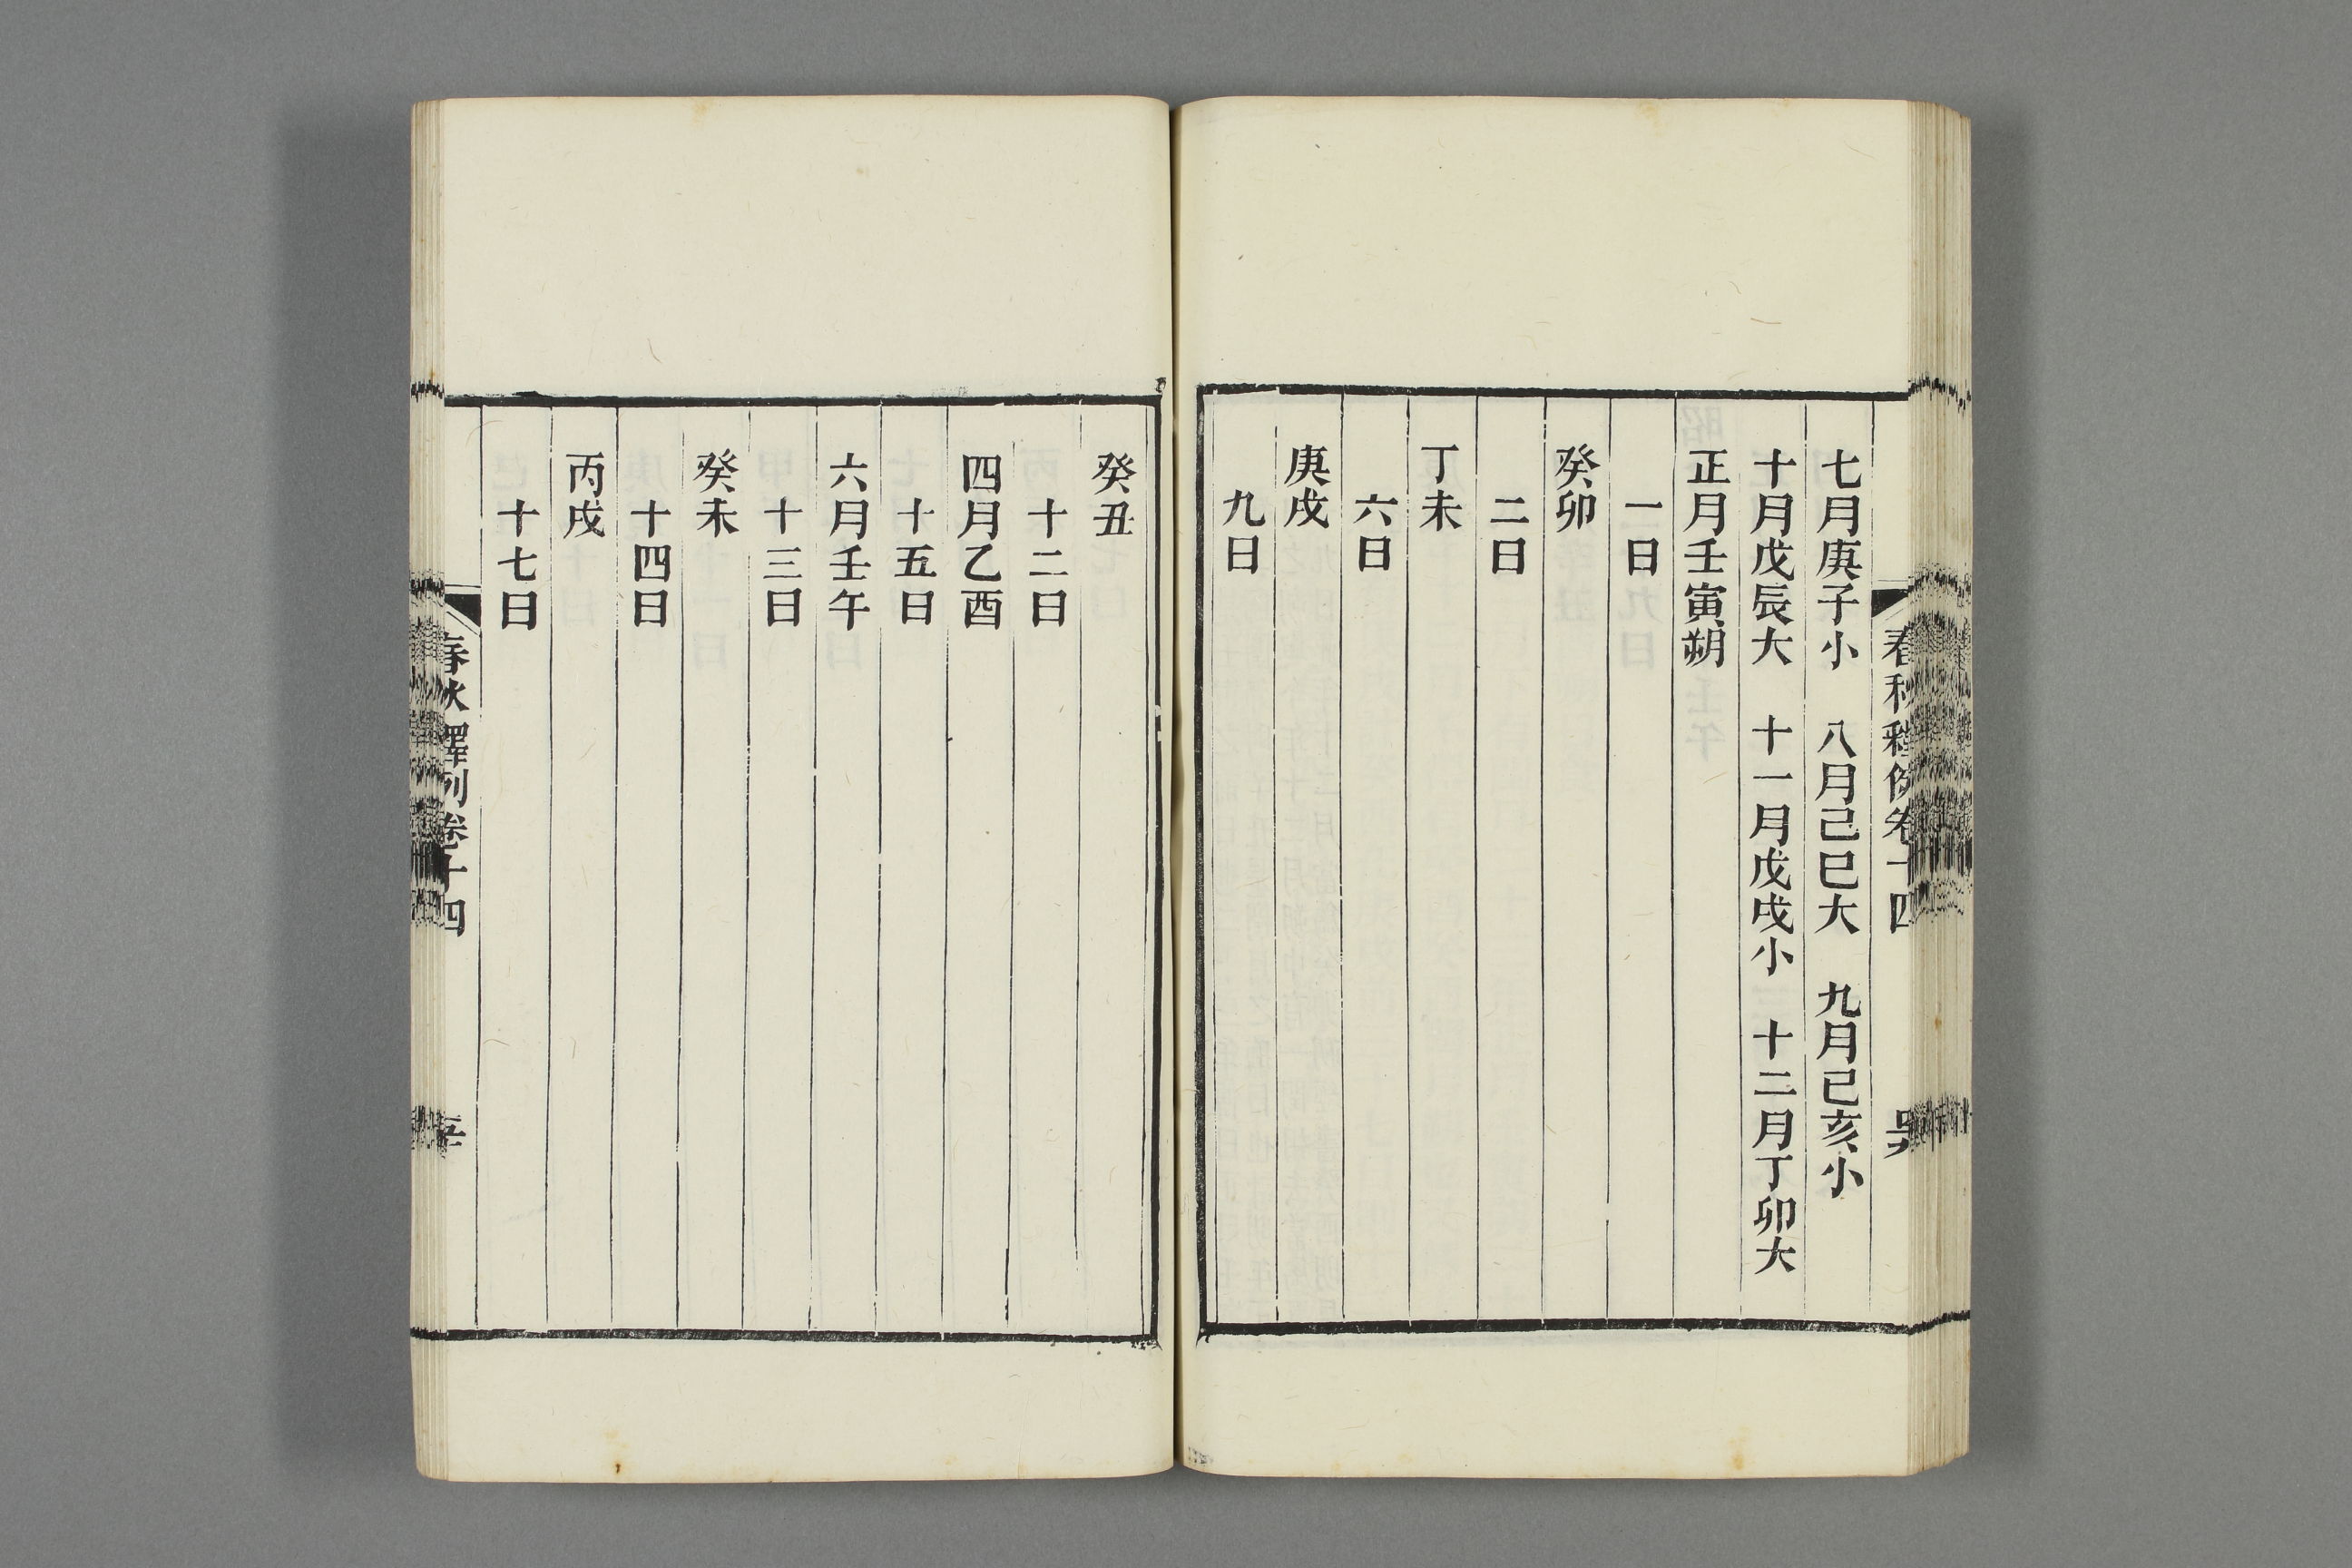 春秋釋例卷十四
七月庚子小　八月己巳大　九月己亥小
十月戊辰大　十一月戊戌小　十二月丁卯大
正月壬寅朔
一日
癸卯
二日
丁未
六日
庚戌
九日
癸丑
十二日
四月乙酉
十五日
六月壬午
十三日
癸未
十四日
丙戌
十七日
春秋釋例卷十四